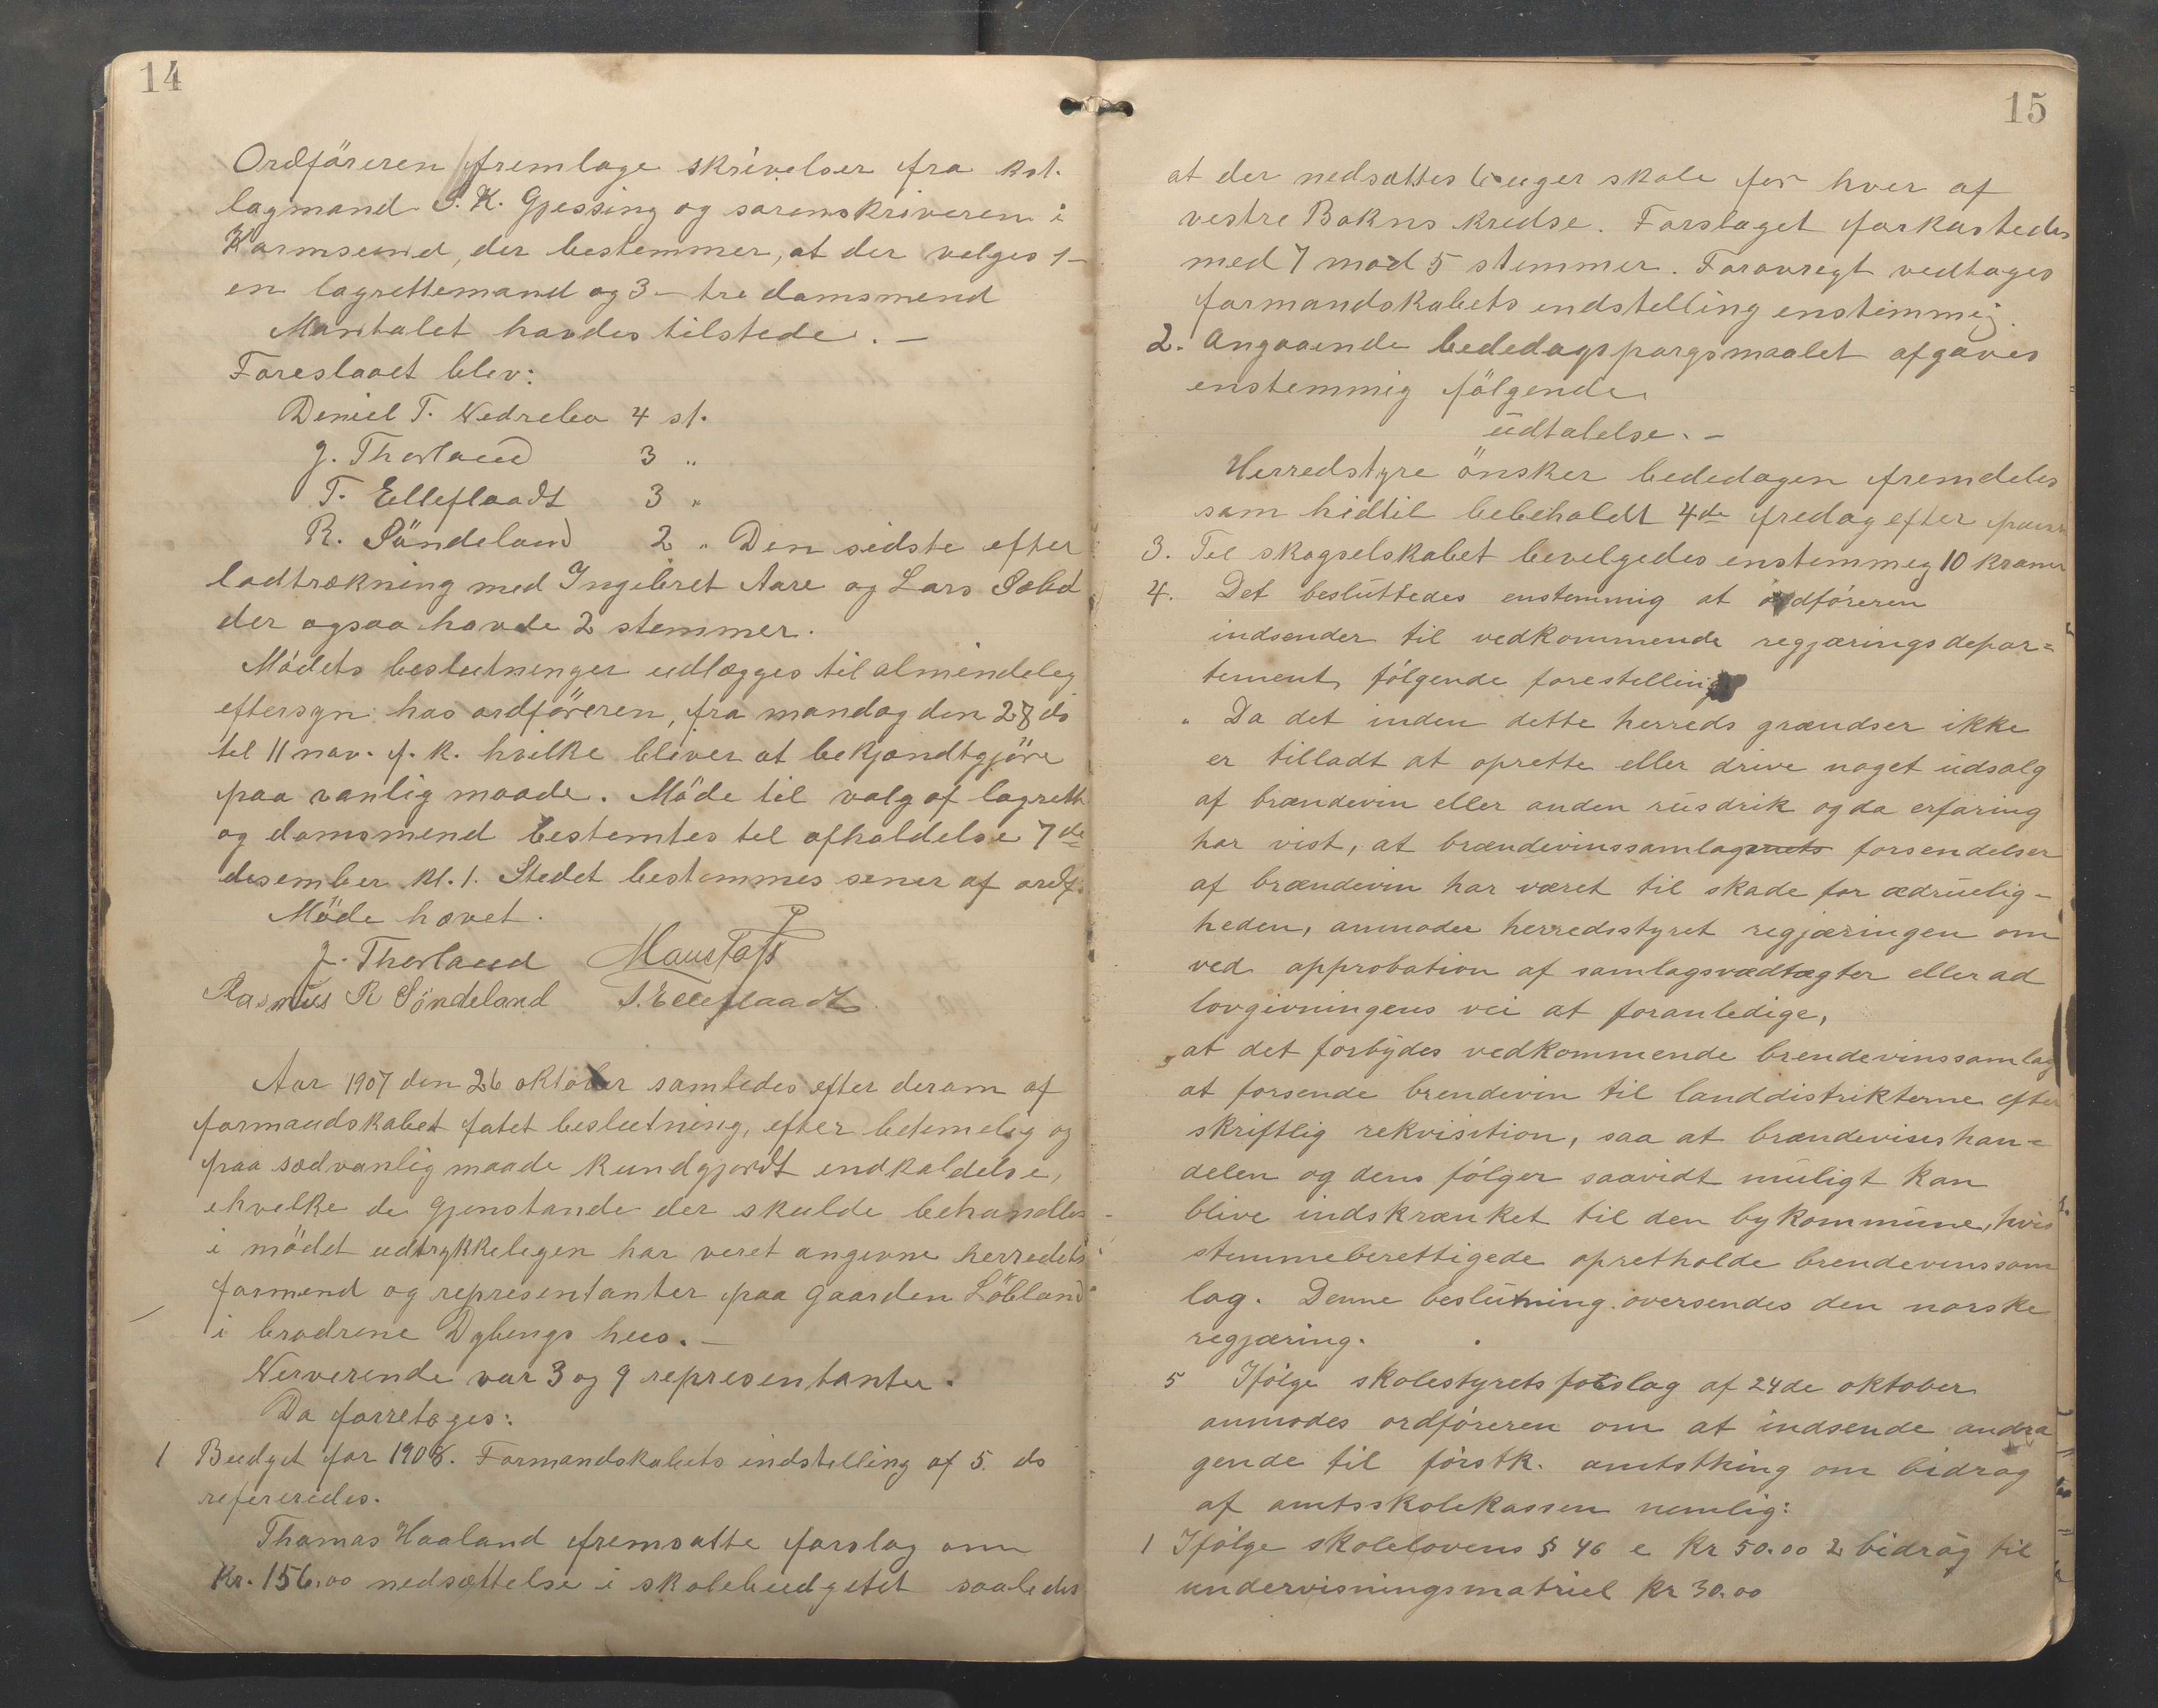 14
Ordföreren fremlage skrivelser fra kst.
lagmand S. K. Gjessing og sorenskriveren i
Karmsund, der bestemmer, at der velges 1-
en lagrettemand og 3 - tre domsmend
Mantalet havdes tilstede. -
Foreslaaet blev:
Deniel T. Nedrebo 4 st.
J. Thorland 3 "
T. Elleflaadt 3 "
R. Söndeland 2 " Den sidste efter
lodtrækning med Ingebret Aare og Lars
der ogsaa havde 2 stemmer.
Mödets beslutninger udlægges til almindelig
eftersyn hos ordföreren, fra mandag den 28 ds
til 11 nov. f. k. hvilke bliver at bekjendtgjöre
paa vanlig maade. Möde til valg af lagrett
og domsmend bestemtes til afholdelse 7de
desember kl. 1. Stedet bestemmes sener af ordf.
Möde hævet.
J. Thorland
Rasmus R Söndeland T. Elleflaadt
Aar 1907 den 26 oktober samledes efter derom af
formandskabet fatet beslutning, efter betimelig og
paa sædvanlig maade kundgjordt indkaldelse,
ihvelke de gjenstande der skulde behandles
i mödet udtrykkelegen har veret angivne herredets
formend og representanter paa gaarden Löbland
i brödrene Dybings hus. -
Nerverende var 3 og 9 representanter.
Da forretoges:
1 Budget for 1908. Formandskabets indstelling af 5. ds
refereredes.
Thomas Haaland fremsatte forslag om
Kr. 156.00 nedsættelse i skolebudgetet saaledes
15
at der nedsættes 6 uger skole for hver af
vestre Bokns kredse. Forslaget forkastedes
med 7 mod 5 stemmer. Foravregt vedtages
formandskabets indstelling enstemmig.
2. Angaaende bededagsporgsmaalet afgaves
enstemmig fölgende
udtalelse. -
Herredstyre önsker bededagen fremdeles
som hidtil bebeholdt 4de fredag efter paask
3. Til skogselskabet bevelgedes enstemmeg 10 kroner
4. Det besluttedes enstemmig at ordföreren
indsender til vedkommende regjæringsdepar=
tement, fölgende forestelling
" Da det inden dette herreds grændser ikke
er tilladt at oprette eller drive noget udsalg
af brændevin eller anden rusdrik og da erfaring
har vist, at brændevinssamlagenets forsendelser
af brændevin har været til skade for ædruelig-
heden, anmoder herredsstyret regjæringen om
ved approbation af samlagsvædtægter eller ad
lovgivningens vei at foranledige,
"at det forbydes vedkommende brendevinssamlag
at forsende brendevin til landdistrikterne efter
skriftlig rekvisition, saa at brændevinshan=
delen og dens fölger saavidt muligt kan
blive indskrænket til den bykommune, hvis
stemmeberettigede opretholde brendevinssam
lag. Denne beslutning oversendes den norske
regjæring.
5 Ifölge skolestyrets forslag af 24de oktober
anmodes ordföreren om at indsende andra
gende til förstk. amtsthing om bidrag
af amtsskolekassen nemlig:
1 Ifölge skolelovens § 46 e Kr 50.00 2 bidrag til
undervisningsmatriel Kr 30.00